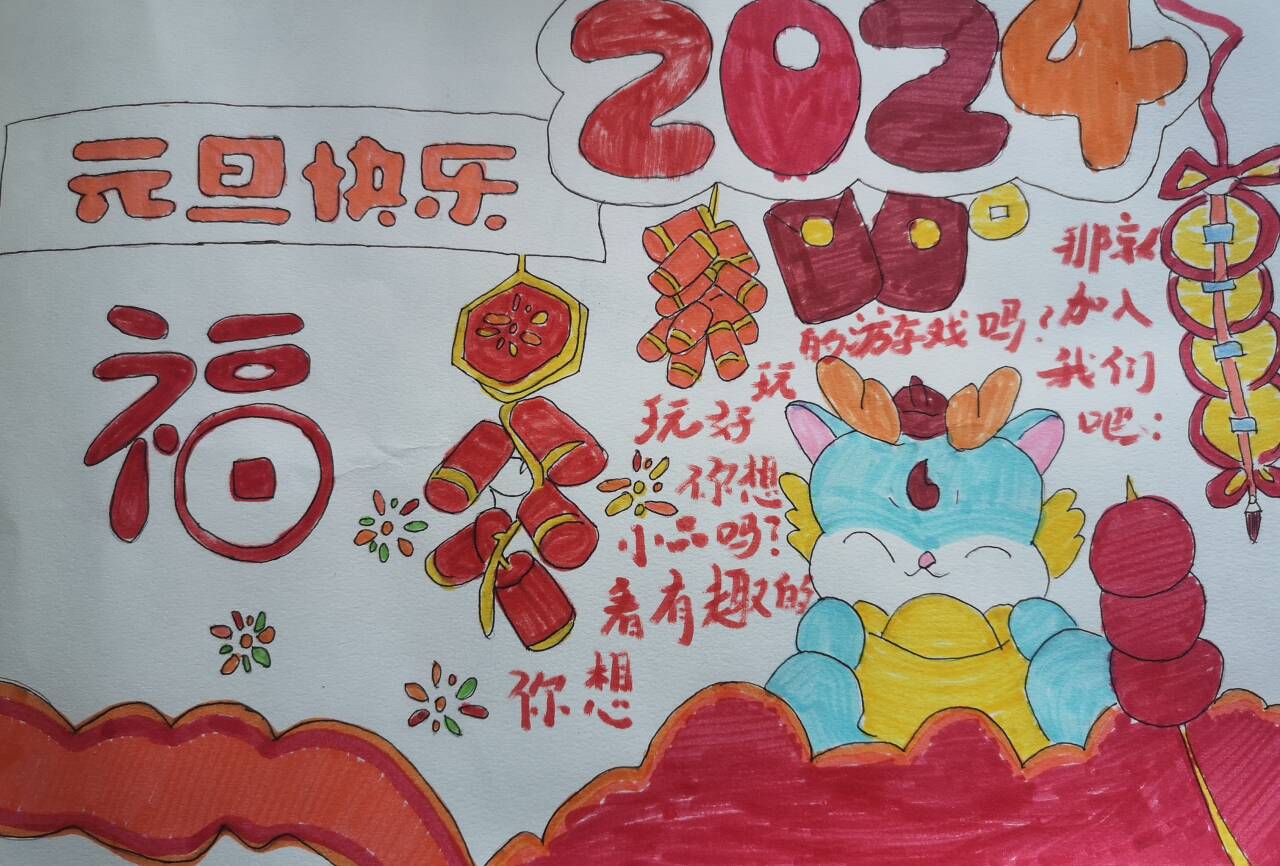 2024
元旦快乐
福
你想
看有趣的
小品吗?
你想
玩好玩
的游戏吗?
那就
加入
我们
吧: